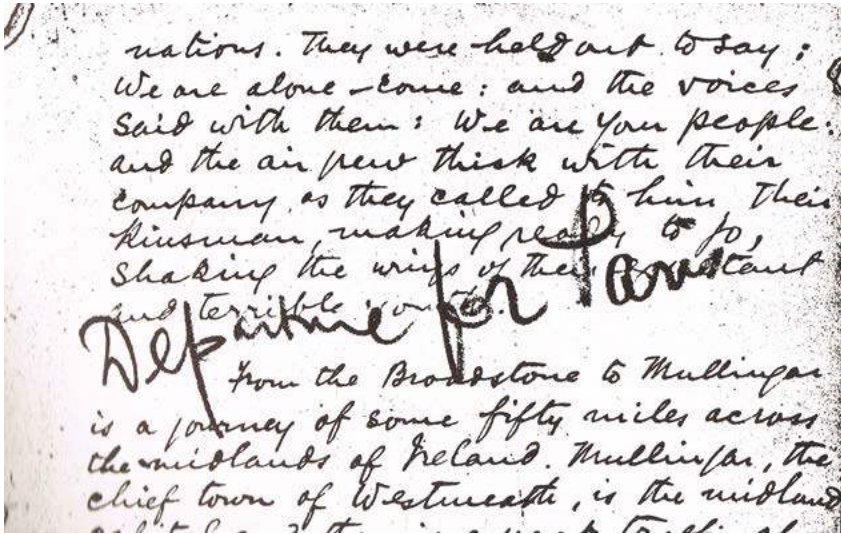 nations. They were held out to say:
We are alone – come: and the voices
said with them: We are your people.
and the air grew thick with their
company as they called to him, their
kinsman, making ready to go,
shaking the wings of their exultant
and terrible youth.
Departure for Paris
From the Broadstone to Mullingar
is a journey of some fifty miles across
the midlands of Ireland. Mullingar, the
chief town of Westmeath, is the midland
capital and there is a great traffic of